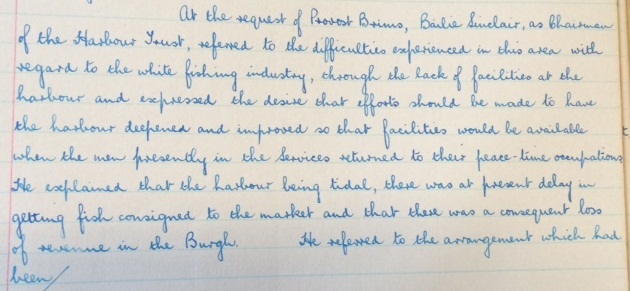 At the request of Provost Brims, Bailie Sinclair, as Chairman
of the Harbour Trust, referred to the difficulties experienced in this area with
regard to the white fishing industry, through the lack of facilities at the
harbour and expressed the desire that efforts should be made to have
the harbour deepened and improved so that facilities would be available
when the men presently in the Services returned to their peace-time occupations.
He explained that the harbour being tidal, there was at present delay in
getting fish consigned to the market and that there was a consequent loss
of revenue in the Burgh. He referred to the arrangement which had
been/